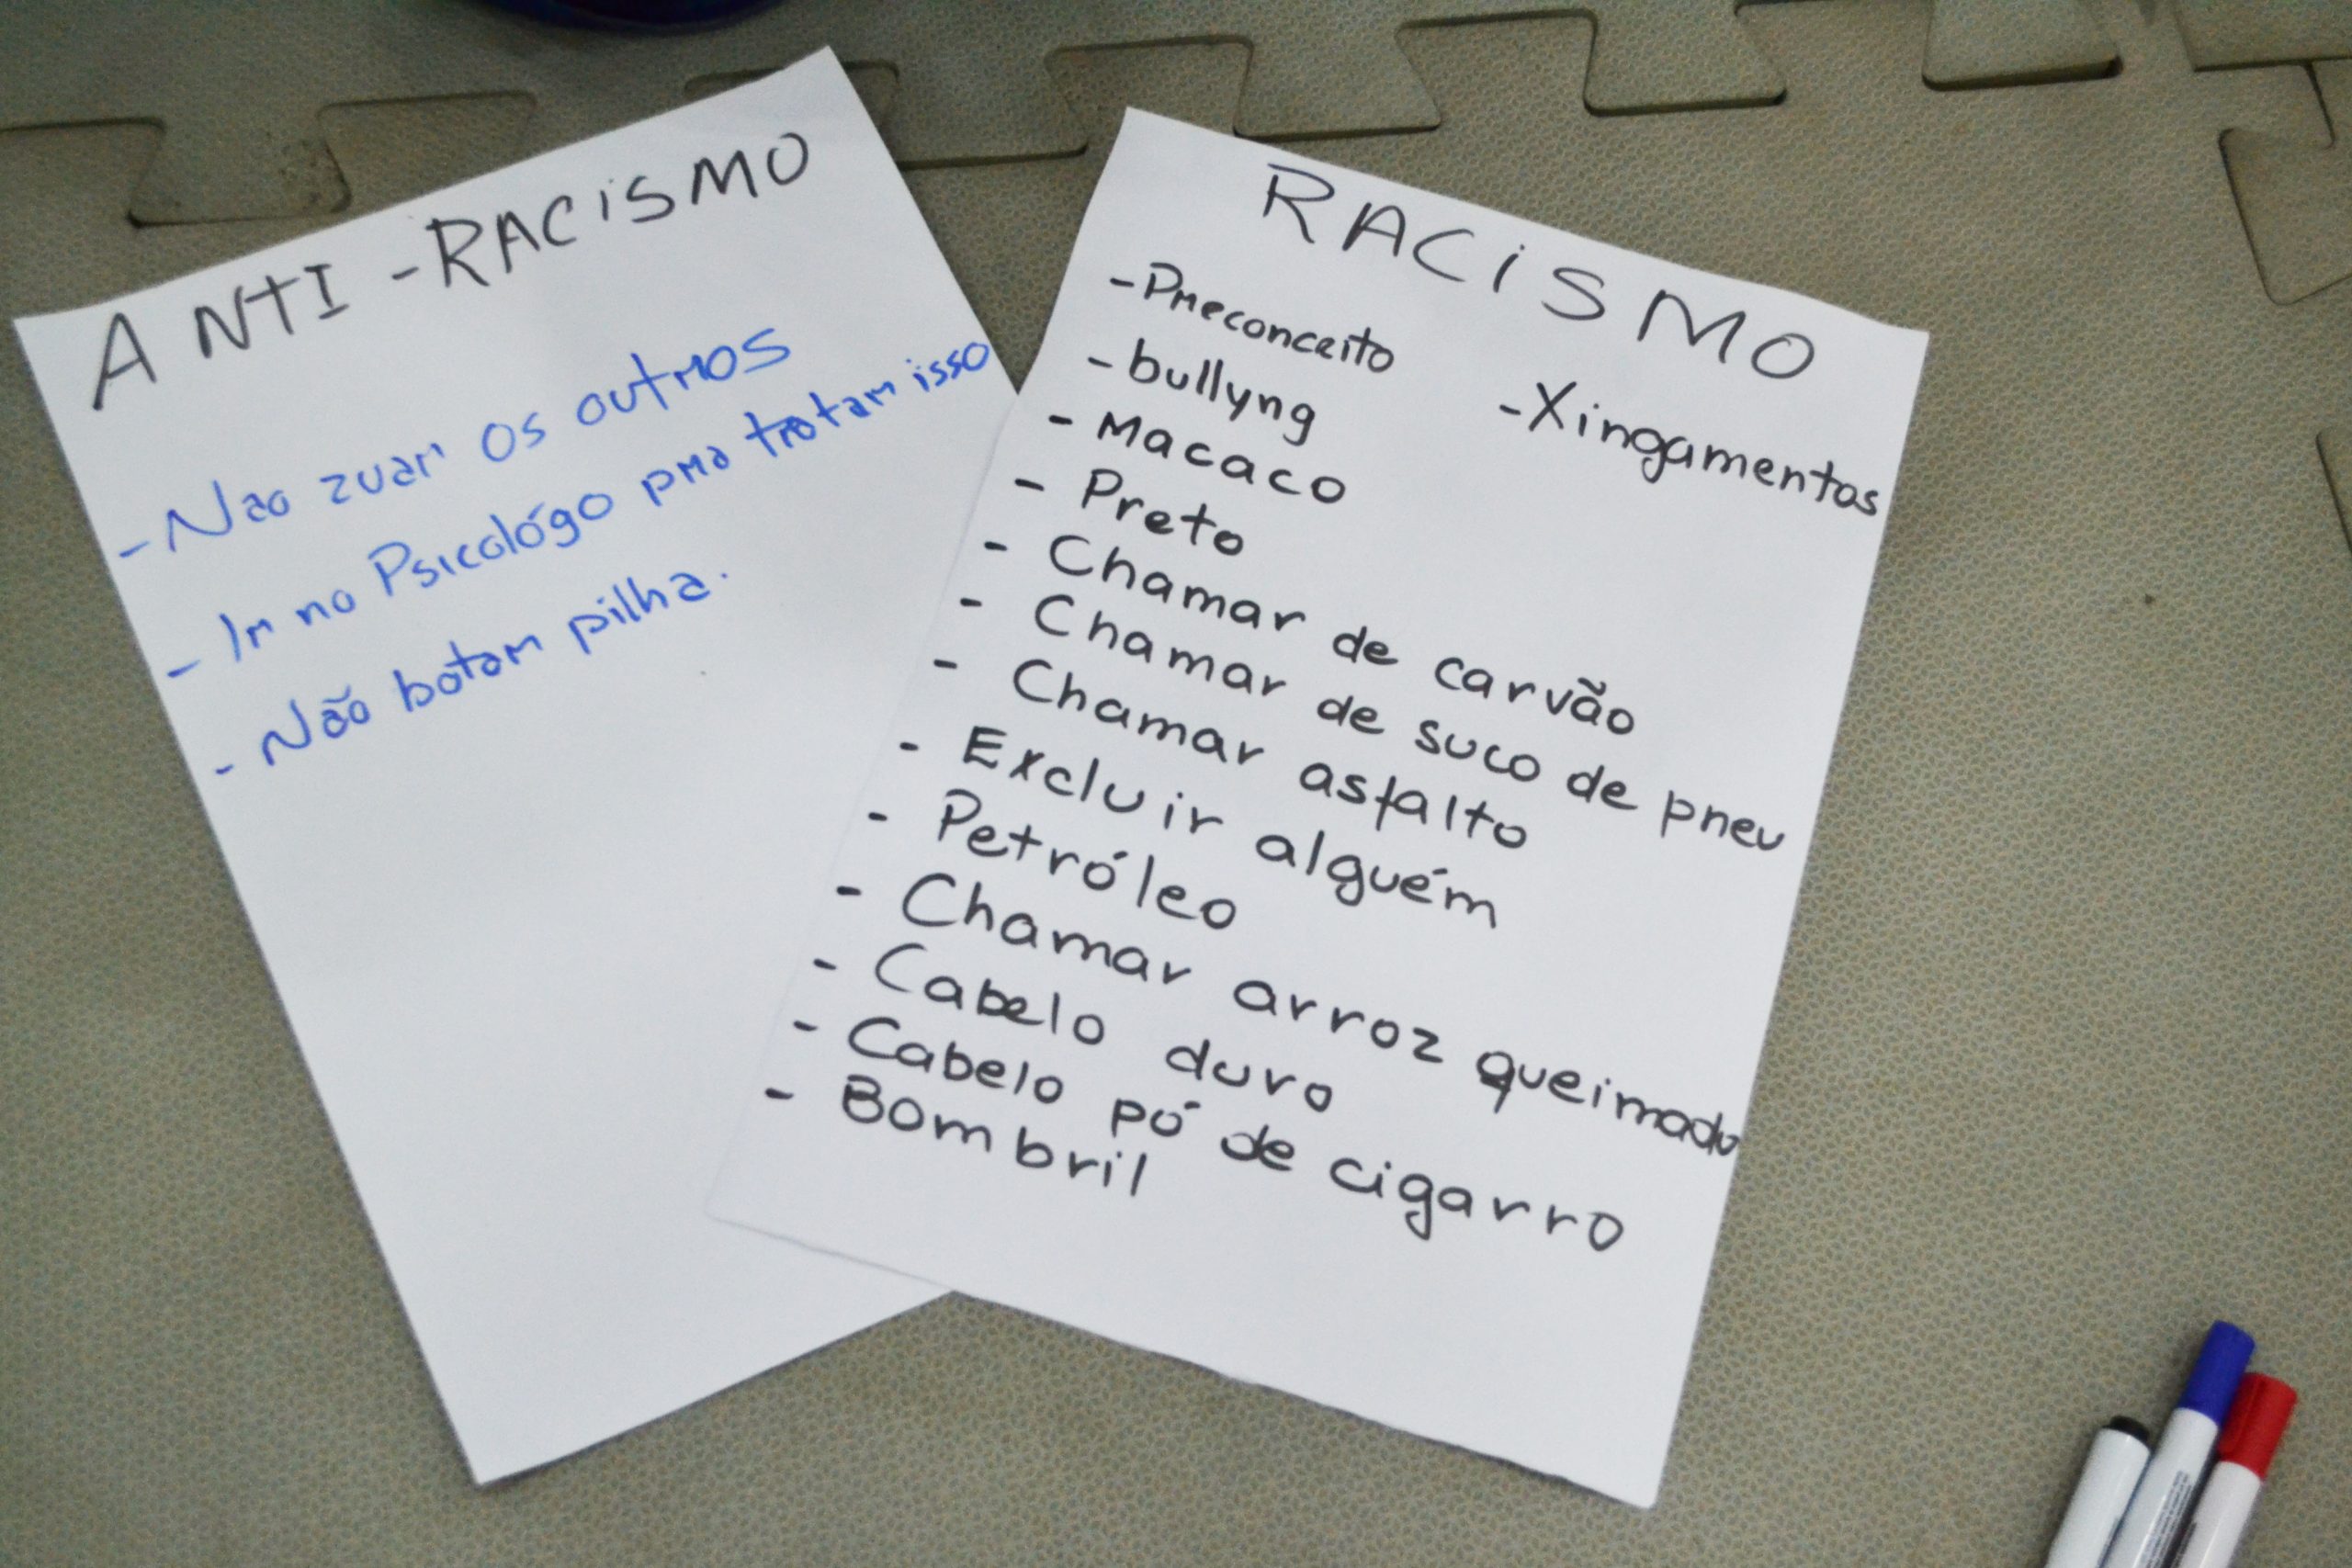 ANTI-RACISMO
- Não zuar os outros
- Ir no Psicológo pra tratar isso
- Não botar pilha.
RACISMO
- Preconceito
- Xingamentos
- bullyng
- Macaco
- Preto
- Chamar de carvão
- Chamar de suco de pneu
- Chamar asfalto
- Excluir alguém
- Petróleo
- Chamar arroz queimado
- Cabelo duro
- Cabelo pó de cigarro
- Bombril